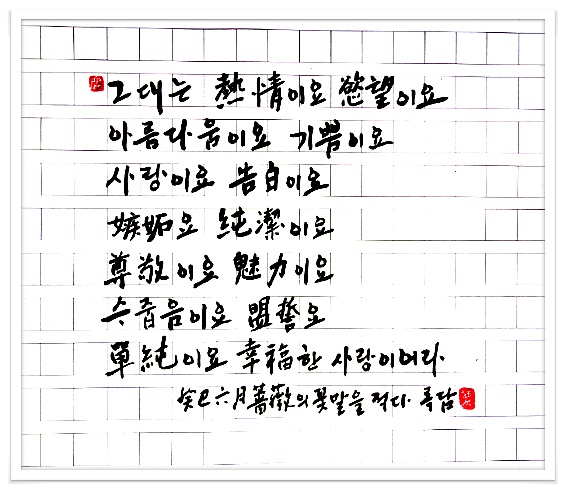 그대는 熱情이요 慾望이요
아름다움이요 기쁨이요
사랑이요 告白이요
嫉妬요 純潔이요
尊敬이요 魅力이요
수줍음이요 盟誓요
單純이요 幸福한 사랑이어라.
癸巳 六月 薔薇의 꽃말을 적다.